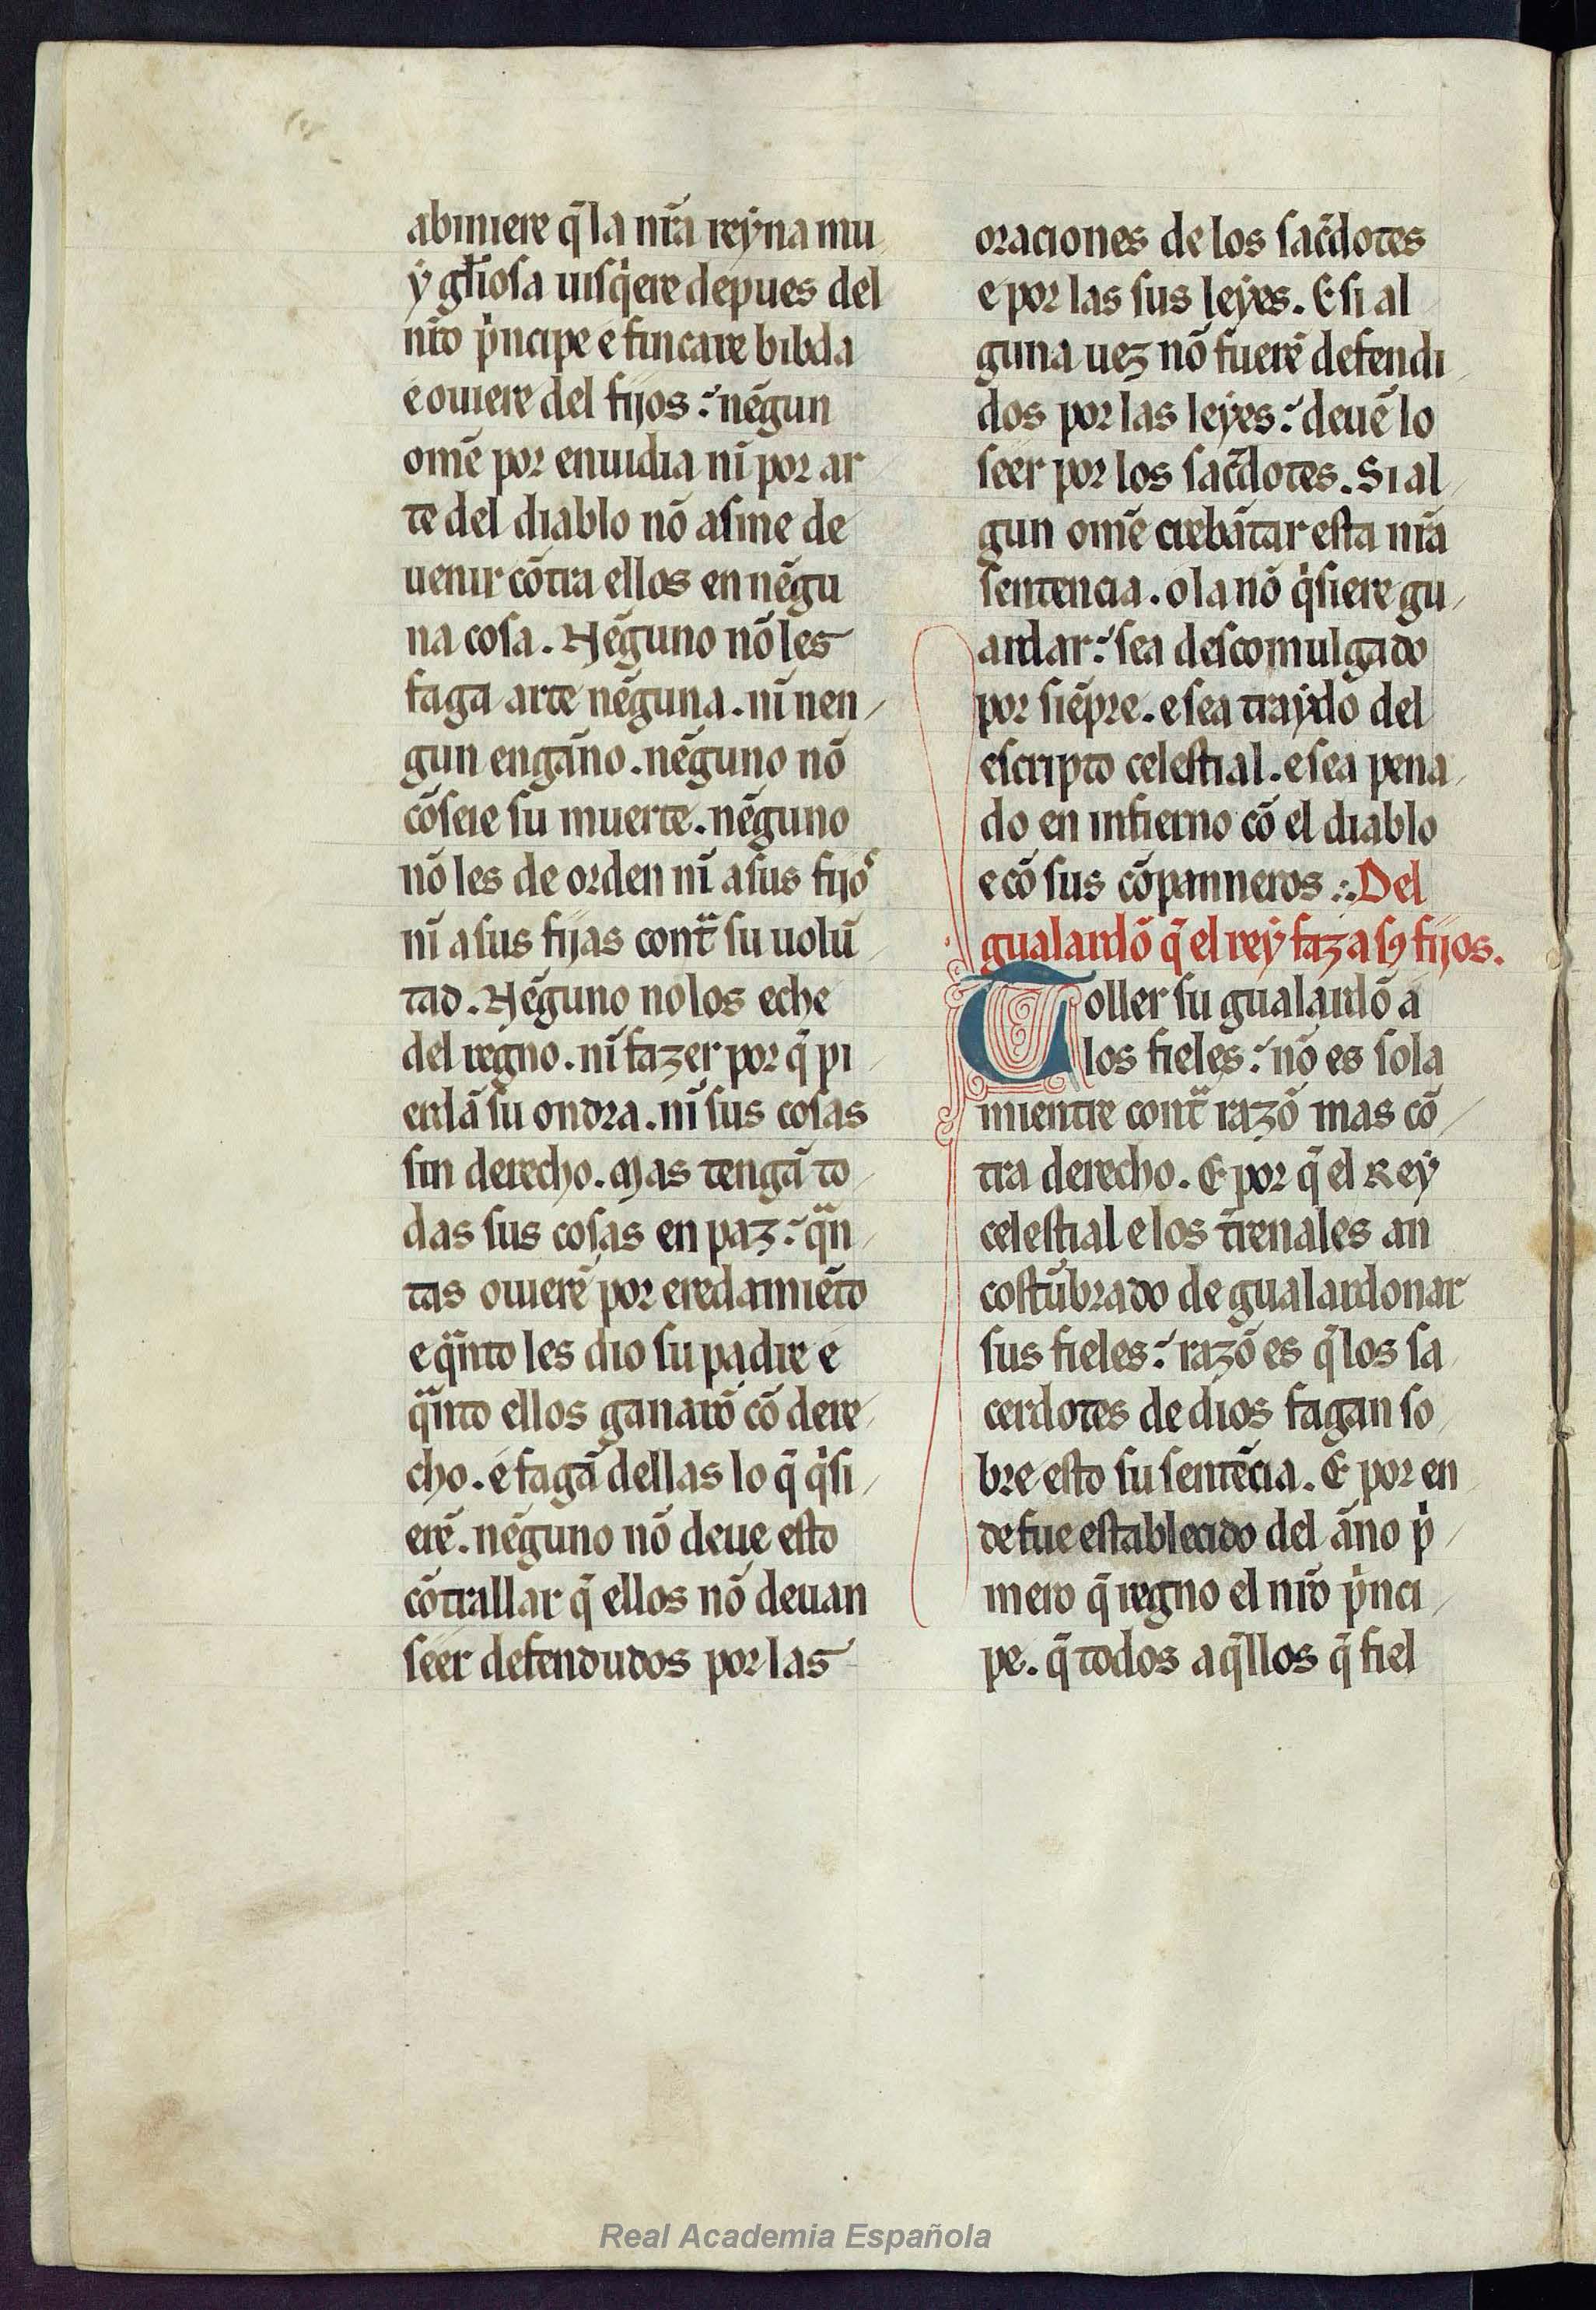 abiniere q̄ la nr̄a reẏna mu
ẏ gl̄iosa uisq̇ere depues del
nr̄o pͥncipe e fincare bibda
e ouiere del fijos : nēgun
omē por enuidia nī por ar
te del diablo nō asme de
uenir cōtra ellos en nēgu
na cosa . Nēguno nō les
faga arte nēguna . nī nen
gun engāno . nēguno nō
cōseie su muerte . nēguno
nō les de orden nī a sus fijos
nī a sus fijas contᷓ su uolū
tad . Nēguno no los eche
del regno . nī fazer por q̄ pi
erdā su ondra . nī sus cosas
sin derecho . Mas tengā to
das sus cosas en paz : qᷓn
tas ouierē por eredamiēto
e qᷓnto les dio su padre e
qᷓnto ellos ganarō cō dere
cho . e fagā dellas lo q̄ qͥsi
erē . nēguno nō deue esto
cōtrallar q̄ ellos nō deuan
seer defendudos por las
oraciones de los sac̄dotes
e por las sus leẏes . E si al
guna uez nō fuerē defendi
dos por las leẏes : deuē lo
seer por los sac̄dotes . Si al
gun omē crebātar esta nr̄a
sentencia . o la nō qͥsiere gu
ardar : sea descomulgado
por siēpre . e sea traẏdo del
escripto celestial . e sea pena
do en infierno cō el diablo
e cō sus cōpanneros .:. Del
gualardō q̄ el rey faz a sꝯ fijos .
Toller su gualardō a
los fieles : nō es sola
mientre contᷓ razō mas cō
tra derecho . E por q̄ el Rey
celestial e los t̄renales an
costūbrado de gualardonar
sus fieles : razō es q̄ los sa
cerdotes de dios fagan so
bre esto su sentēcia . E por en
de fue establecido del āno pͥ
mero q̄ regno el nr̄o pͥnci
pe . q̄ todos aq̄llos q̄ fiel
Real Academia Española